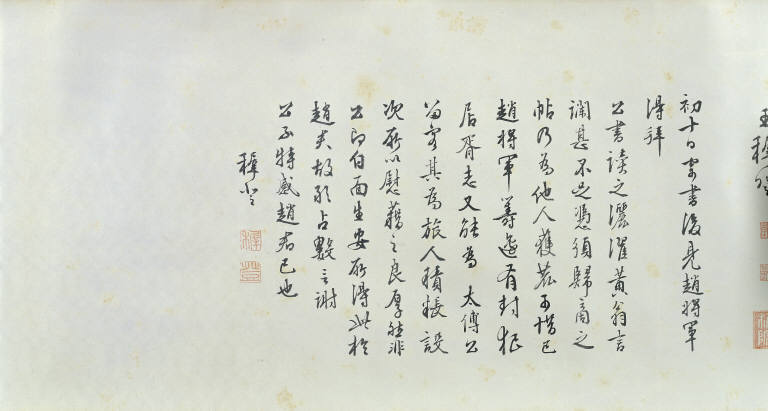 初十日寄書後見趙將軍
得拜
公書讀之灑濯黃翁言
讕甚不足憑須歸商之
帖乃為他人獲甚可惜已
趙將軍籌邊有封
居胥志又能為太傅公
留客其為旅人積餱設
次所以慰藉之良厚能非
公即白面生安所得此於
趙夫故敢占數言謝
公不特感趙君已也
穉登